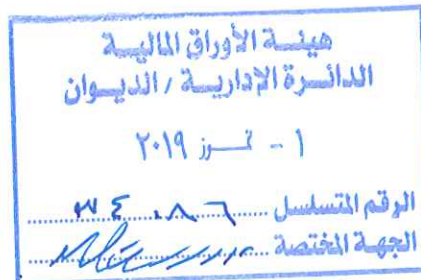 هيئة الأوراق المالية
الدائرة الإدارية / الديوان
١ - تموز ٢٠١٩
الرقم المتسلسل ٣٤٠٨٦
الجهة المختصة